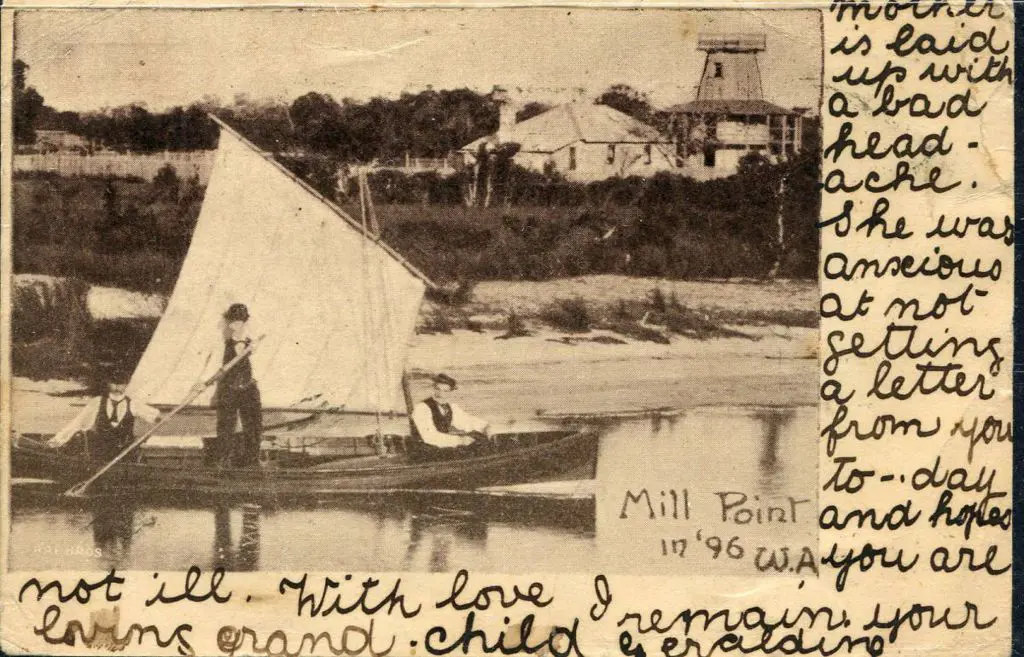 mother
is laid
up with
a bad
head-
ache.
She was
anxious
at not
getting
a letter
from you
to-day
and hopes
you are
not ill. With love I remain your
loving grand-child Geraldine
Mill Point
in '96 W.A
BROS